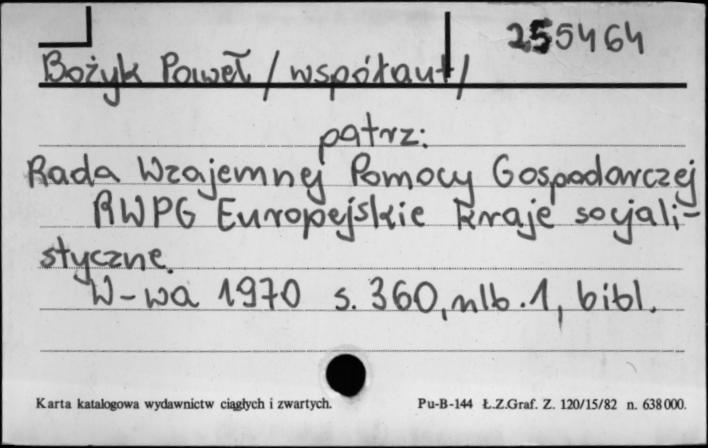 255464
Bożyk Paweł /współaut/
patrz:
Rada Wzajemnej Pomocy Gospodarczej
RWPG Europejskie kraje socjali-
styczne.
W-wa 1970 s. 360, nlb. 1, bibl.
Karta katalogowa wydawnictw ciągłych i zwartych.
Pu-B-144 Ł.Z.Graf. Z. 120/15/82 n. 638000.